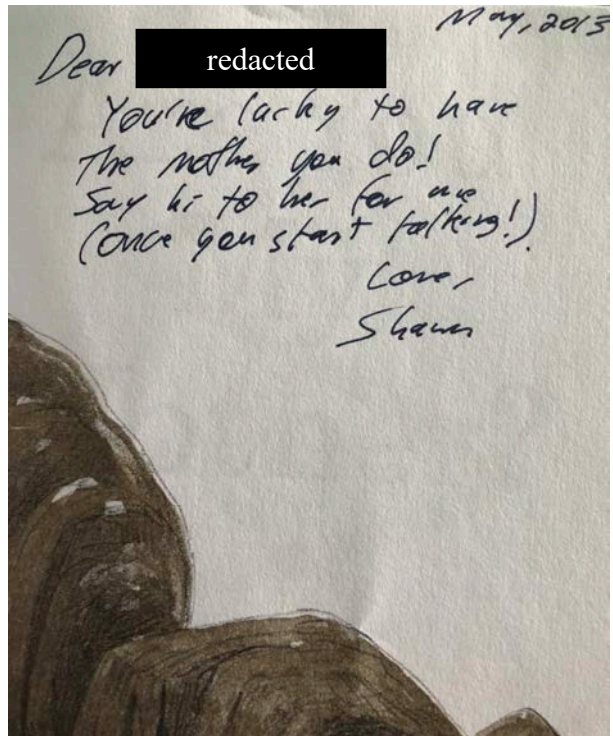 May, 2013
Dear redacted
You're lucky to have
The mother you do!
Say hi to her for me
(once you start talking!).
Love,
Shawn